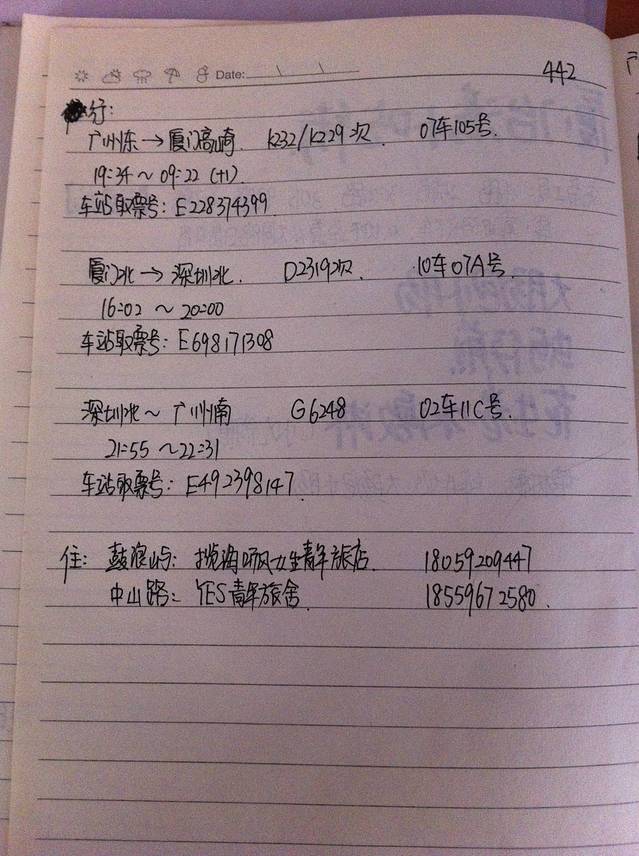 Date:
442
行:
广州东→厦门高崎 K232/K229次 07车105号.
19:34～09:22 (+1)
车站取票号: E228374399
厦门北→深圳北. D2319次 10车07A号
16:02～20:00
车站取票号: E698171308
深圳北～广州南 G6248 02车11C号.
21:55～22:31
车站取票号: E492398147.
住: 鼓浪屿: 揽海听风女生青年旅店. 18059209447
中山路: YES青年旅舍. 18559672580.